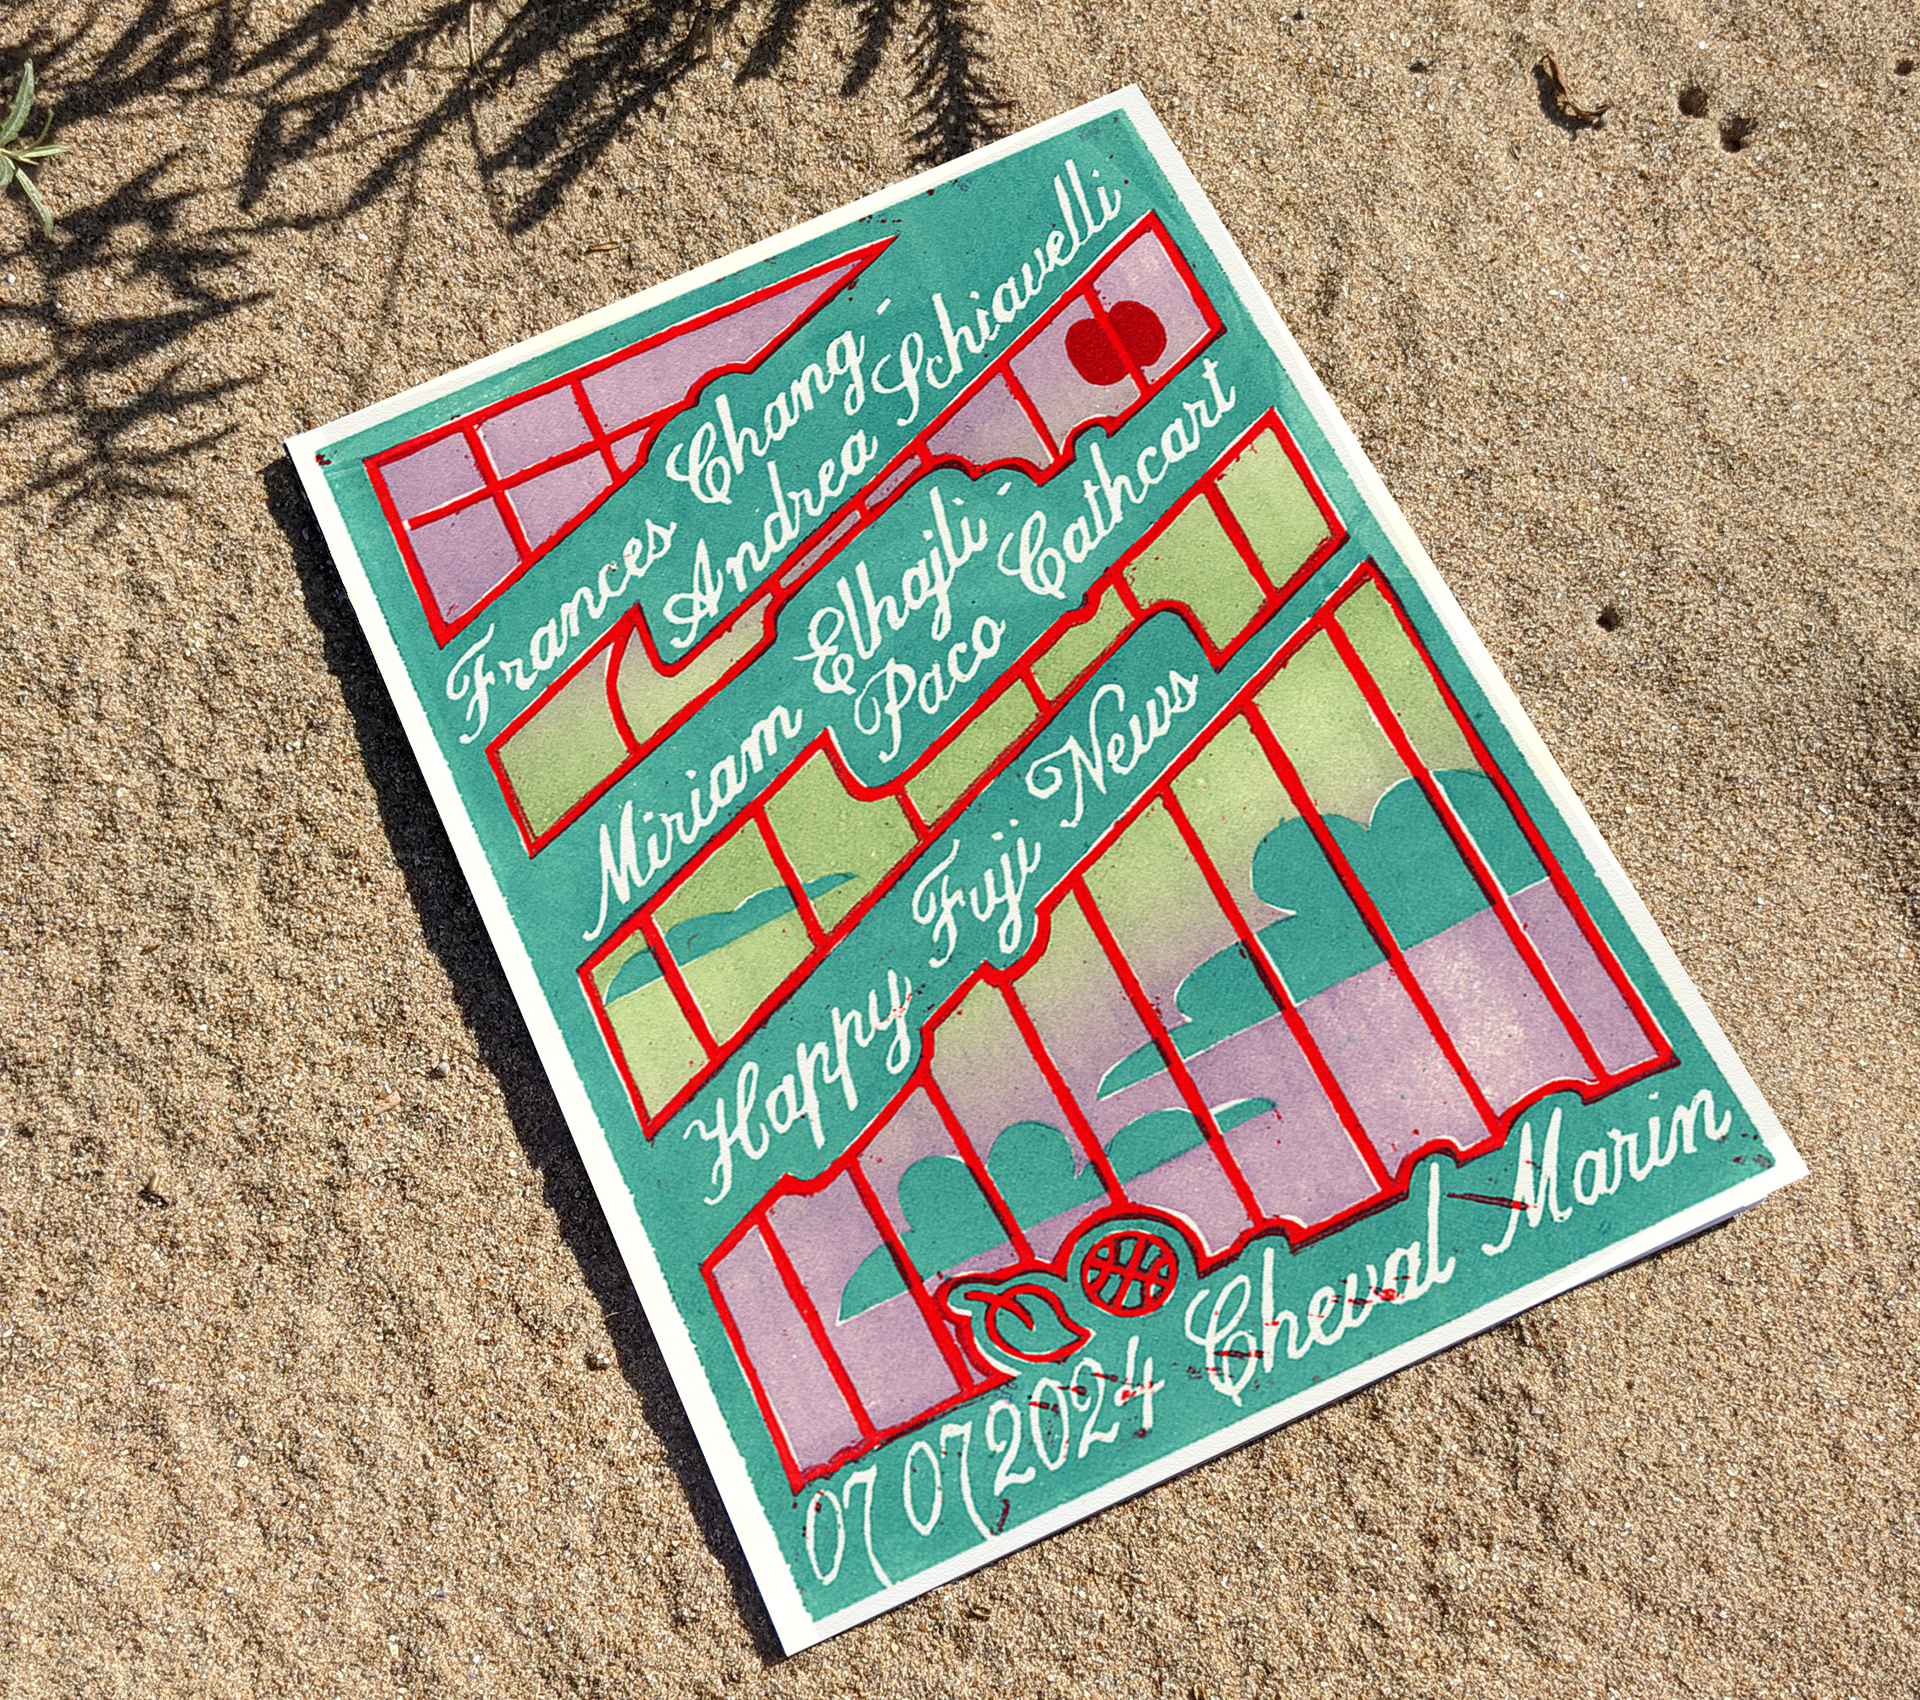 Frances Chang -
Andrea Schiavelli
Miriam Elhajli -
Paco Cathcart
Happy Fuji News
07 07 2024 Cheval Marin